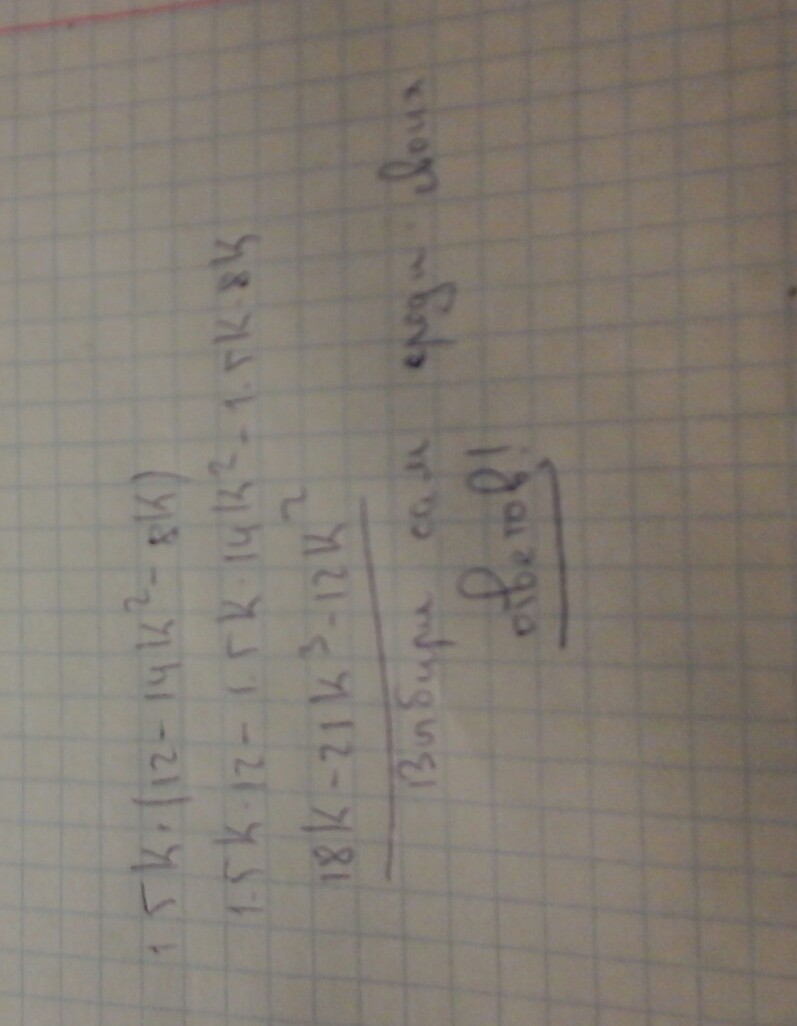 1.5K·(12-14K²-8K)
1.5K·12-1.5K·14K²-1.5K·8K
18K-21K³-12K²
Выбири сам среди своих
ответов!